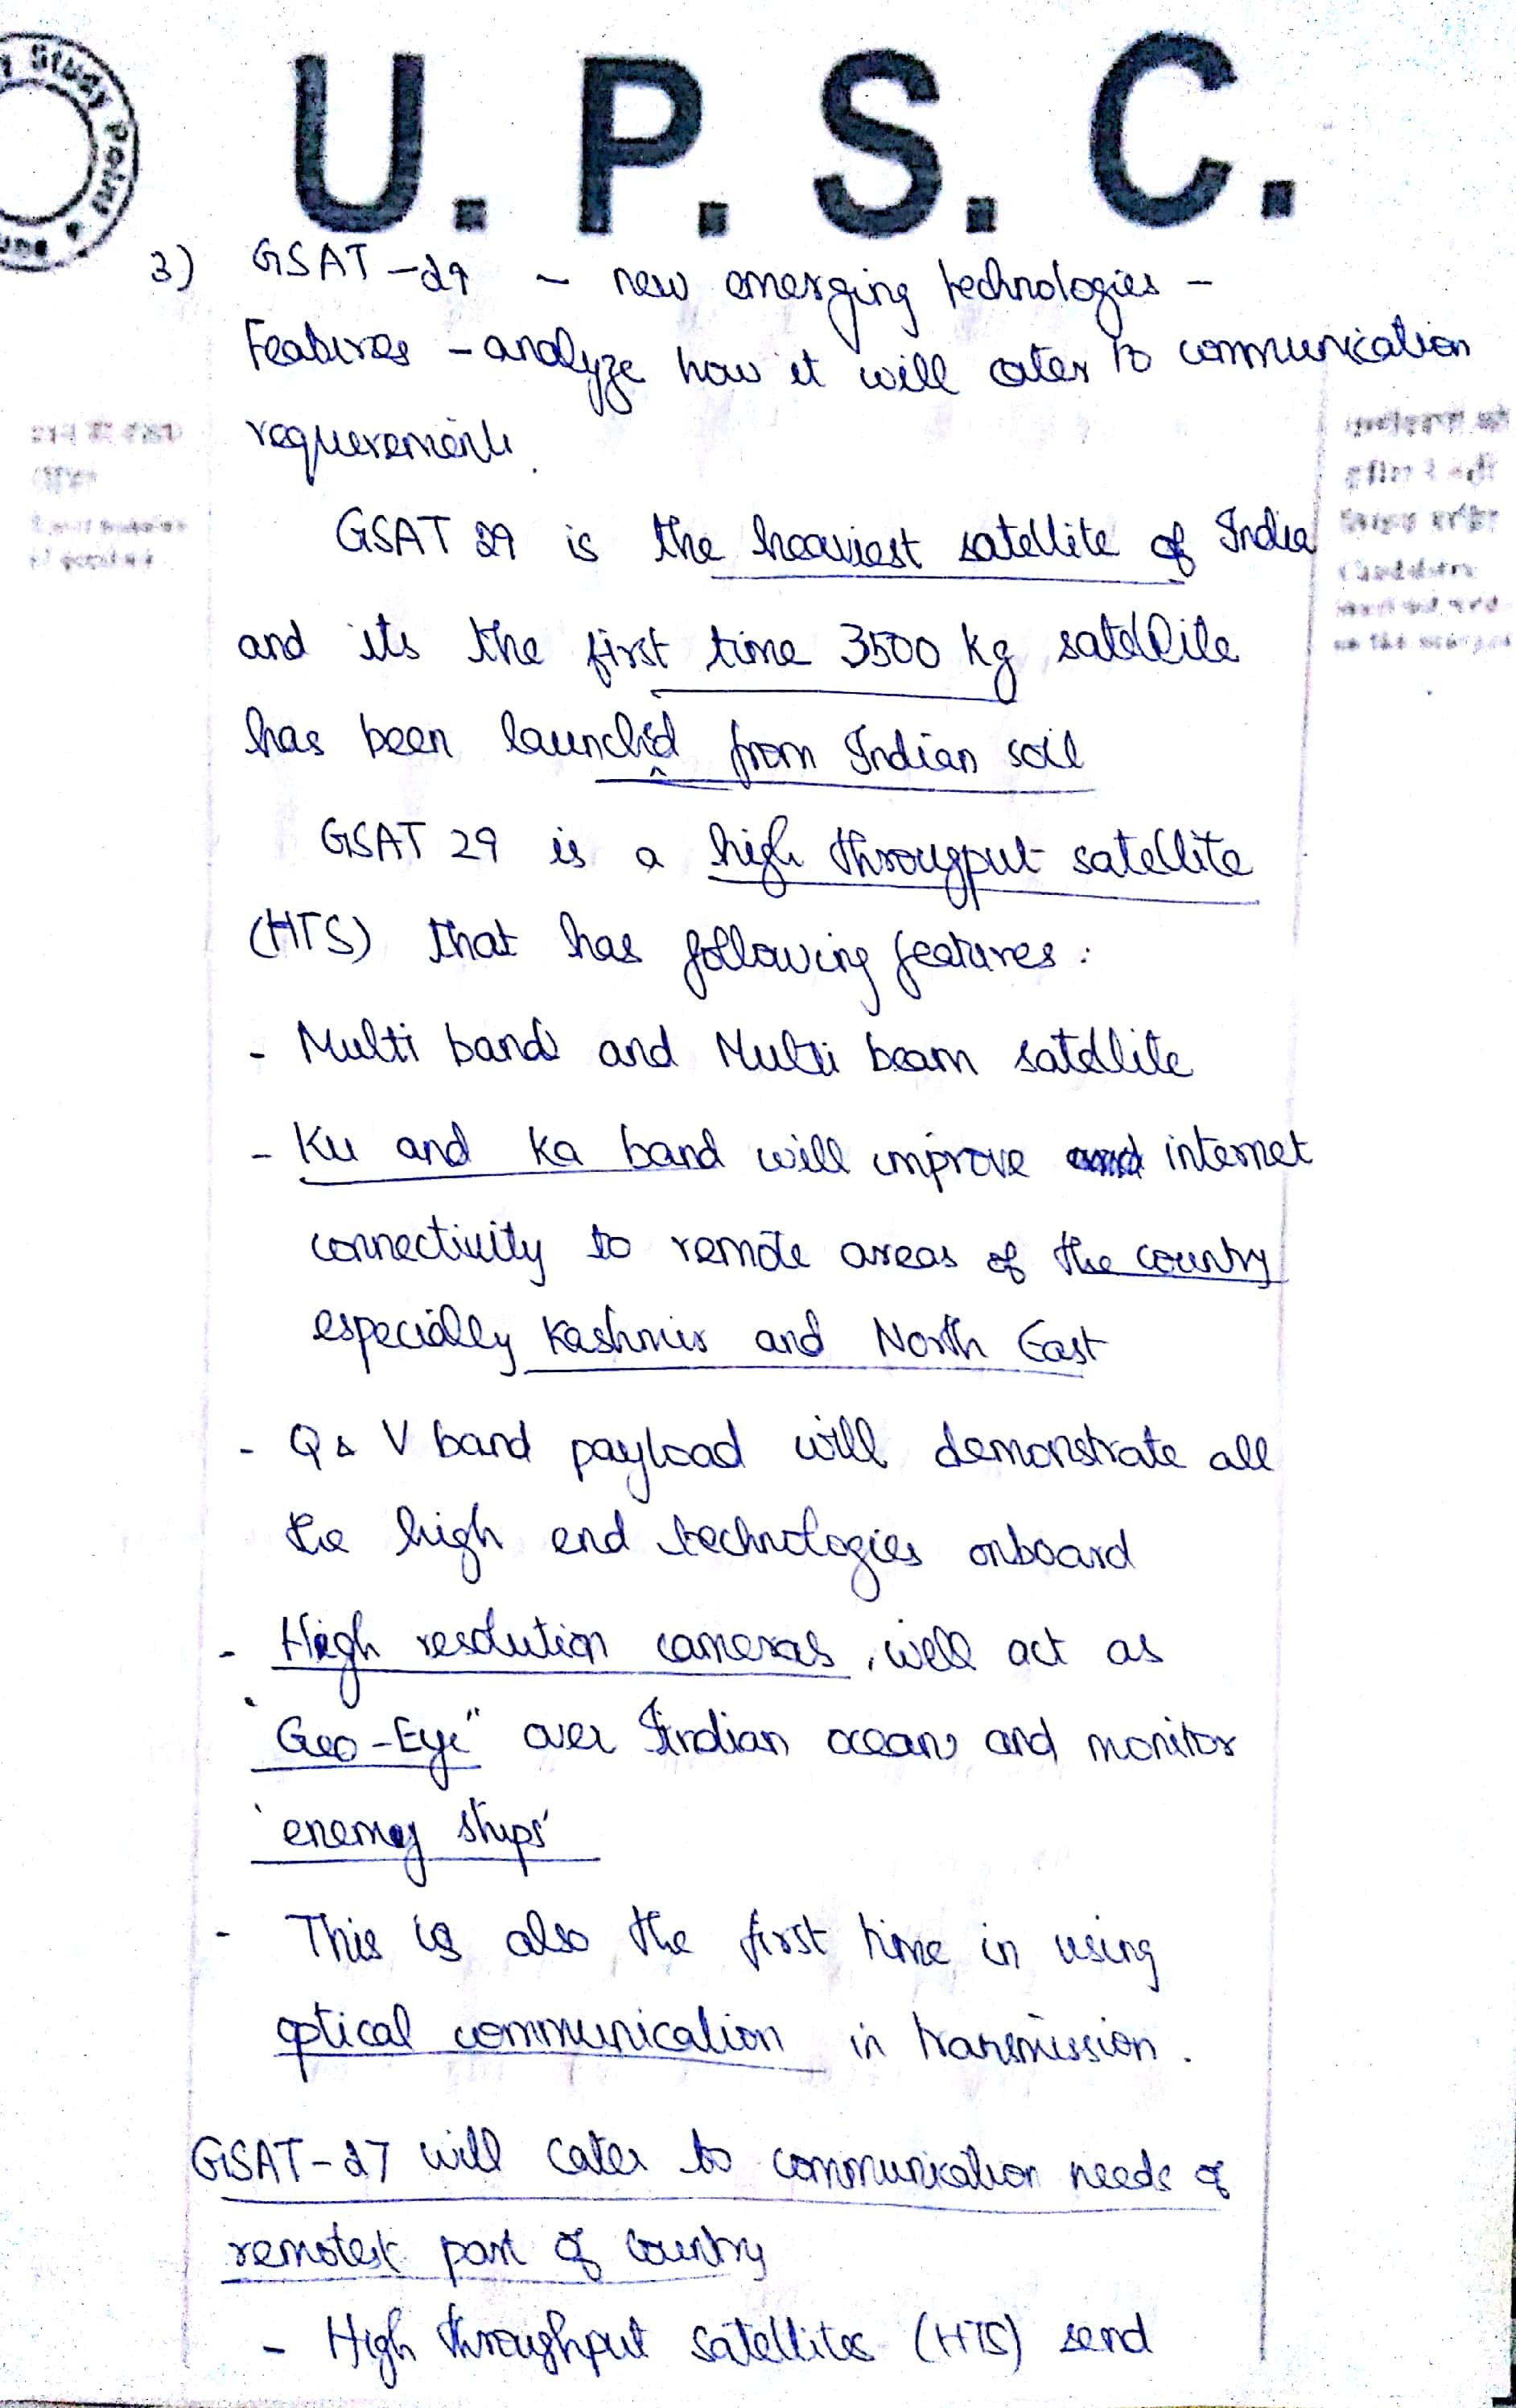 Study Point
U.P.S.C.
3) GSAT-29 - new emerging technologies -
Features - analyze how it will cater to communication
requirements.
GSAT 29 is the heaviest satellite of India
and its the first time 3500 kg satellite
has been launched from Indian soil
GSAT 29 is a high througput satellite
(HTS) that has following features:
- Multi band and Multi beam satellite
- Ku and Ka band will improve internet
connectivity to remote areas of the country
especially Kashmir and North East
- Q & V band payload will demonstrate all
the high end technologies onboard
- High resolution cameras, will act as
"Geo-Eye" over Indian ocean and monitor
'enemy ships'
- This is also the first time in using
optical communication in transmission.
GSAT-27 will cater to communication needs of
remotest part of country
- High throughput satellites (HTS) send